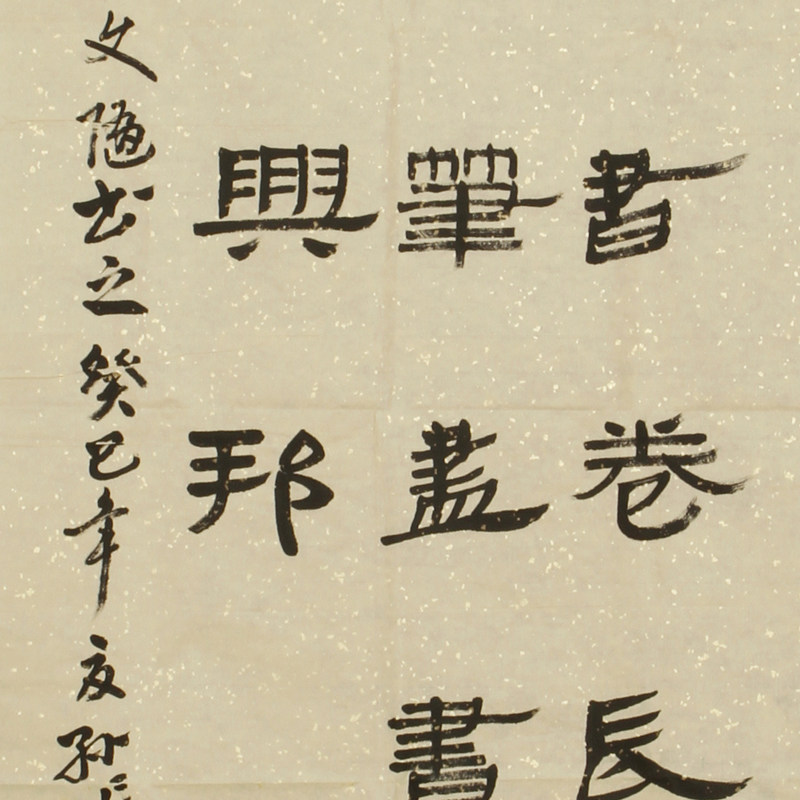 書卷長
筆盡書
興邦
文书之癸巳年夏孙